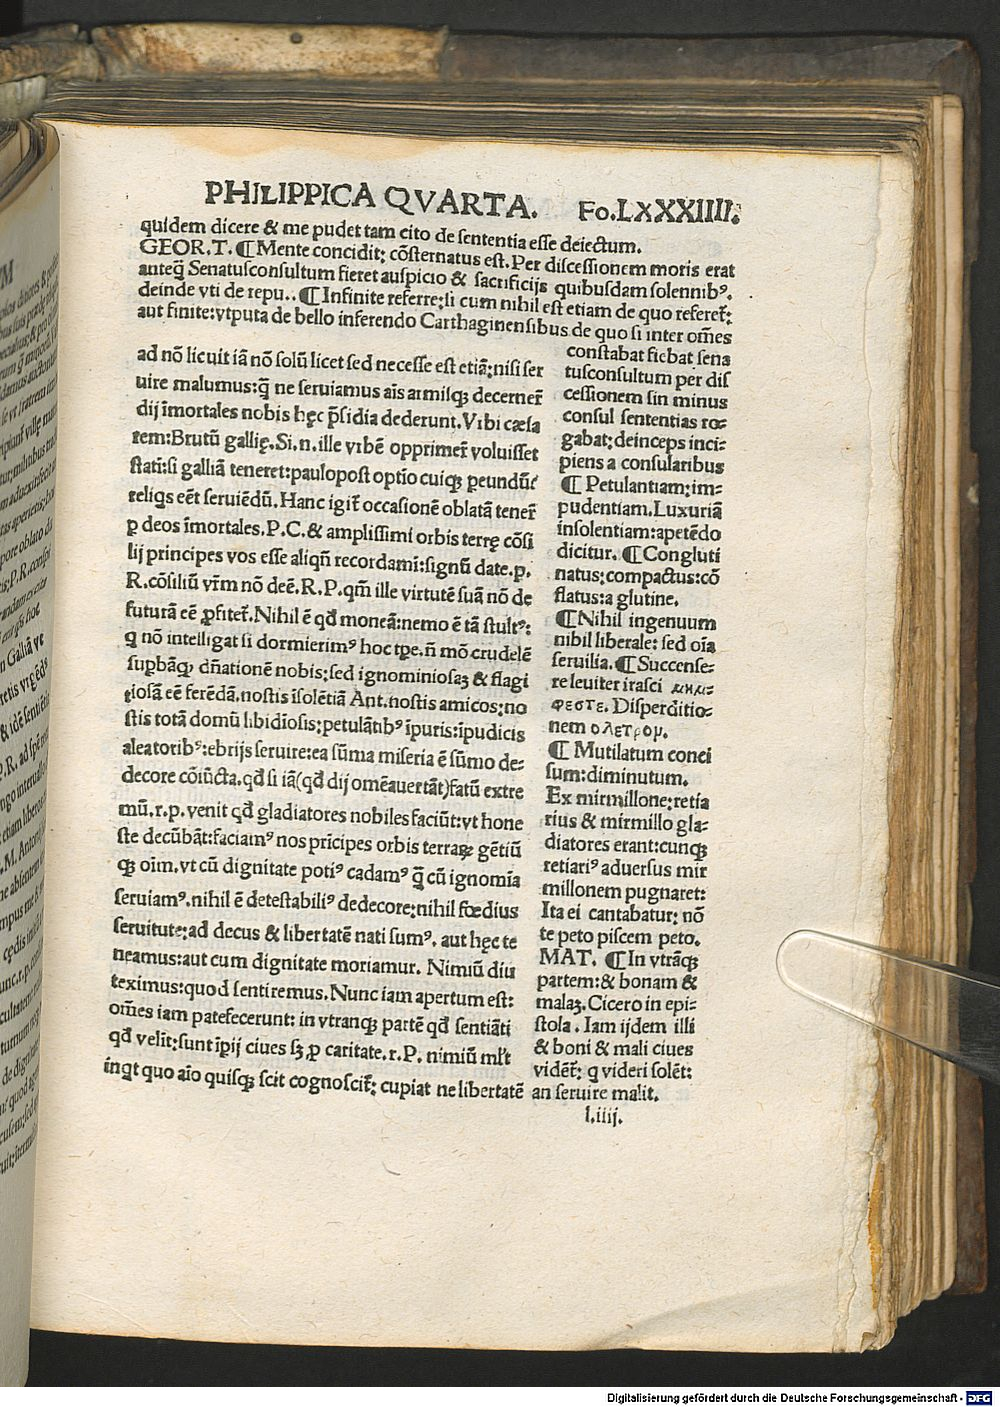 PHILIPPICA QVARTA. Fo.LXXXIIII.
quidem dicere & me pudet tam cito de sententia esse deiectum.
GEOR.T. ¶Mente concidit: cōsternatus est. Per discessionem moris erat
anteq̄ Senatusconsultum fieret auspicio & sacrificijs quibusdam solennibꝰ.
deinde vti de repu.. ¶Infinite referre: si cum nihil est etiam de quo referet̄:
aut finite: vtputa de bello inferendo Carthaginensibus de quo si inter om̄es
constabat fiebat sena
tusconsultum per dis
cessionem sin minus
consul sententias ro⸗
gabat: deinceps inci⸗
piens a consularibus
¶ Petulantiam: im⸗
pudentiam. Luxuriā
insolentiam: apetēdo
dicitur. ¶Congluti
natus: compactus: cō
flatus: a glutine.
¶Nihil ingenuum
nihil liberale: sed oīa
seruilia. ¶Succense⸗
re leuiter irasci μημ⸗
φεστε. Disperditio⸗
nem ολετρομ.
¶ Mutilatum conci
sum: diminutum.
Ex mirmillone: retia
rius & mirmillo gla⸗
diatores erant: cunqꝫ
retiariꝰ aduersus mir
millonem pugnaret:
Ita ei cantabatur: nō
te peto piscem peto.
MAT. ¶In vtrāqꝫ
partem: & bonam &
malaꝫ. Cicero in epi⸗
stola. Iam ijdem illi
& boni & mali ciues
vidēt̄: q videri solēt:
an seruire malit.
ad nō licuit iā nō solū licet sed necesse est etiā: nisi ser
uire malumus: q̄ ne seruiamus aīs armisqꝫ decerner̄
dij īmortales nobis hęc p̄sidia dederunt. Vrbi cæsa
rem: Brutū gallię. Si.n.ille vrbē opprimer̄ voluisset
stati: si galliā teneret: paulopost optio cuiqꝫ peundū
reliqs eēt seruiēdū. Hanc igit̄ occasionē oblatā tener̄
p deos īmortales. P.C. & amplissimi orbis terrę cōsi
lij principes vos esse aliqn̄ recordami: signū date.p.
R. cōsiliū vr̄m nō deē. R.P. qm̄ ille virtutē suā nō de
futurā eē ꝓfitet̄. Nihil ē qd̄ moneā: nemo ē tā stultꝰ:
q nō intelligat si dormierimꝰ hoc tp̄e, n̄ mō crudelē
supbāqꝫ dn̄ationē nobis: sed ignominiosaꝫ & flagi
tiosā eē ferēdā. nostis īsolētiā Ant. nostis amicos: no
stis totā domū libidiosis: petulātibꝰ īpuris: īpudicis
aleatoribꝰ: ebrijs seruire: ea sūma miseria ē sūmo de⸗
decore cōiūcta. qd̄ si iā(qd̄ dij omē auertāt)fatū extre
mū.r.p. venit qd̄ gladiatores nobiles faciūt: vt hone
ste decūbāt: faciamꝰ nos prīcipes orbis terraꝝ gētiū
qꝫ oīm. vt cū dignitate potiꝰ cadamꝰ q̄ cū ignomīa
seruiamꝰ. nihil ē detestabiliꝰ dedecore: nihil fœdius
seruitute: ad decus & libertatē nati sumꝰ. aut hęc te
neamus: aut cum dignitate moriamur. Nimiū diu
teximus: quod sentiremus. Nunc iam apertum est:
om̄es iam patefecerunt: in vtranqꝫ partē qd̄ sentiāti
qd̄ velit: sunt īpij ciues sꝫ ꝓ caritate.r.P. nimiū ml̄t
inqt quo aīo quisqꝫ scit cognoscit̄: cupiat ne libertatē
l.iiij.
Digitalisierung gefördert durch die Deutsche Forschungsgemeinschaft - DFG